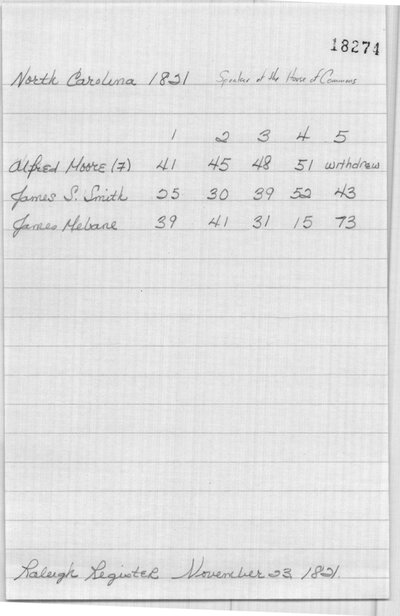 18274
North Carolina 1821 Speaker of the House of Commons
1 2 3 4 5
Alfred Moore (7) 41 45 48 51 withdrew
James S. Smith 25 30 39 52 43
James Mebane 39 41 31 15 73
Raleigh Register November 23, 1821.